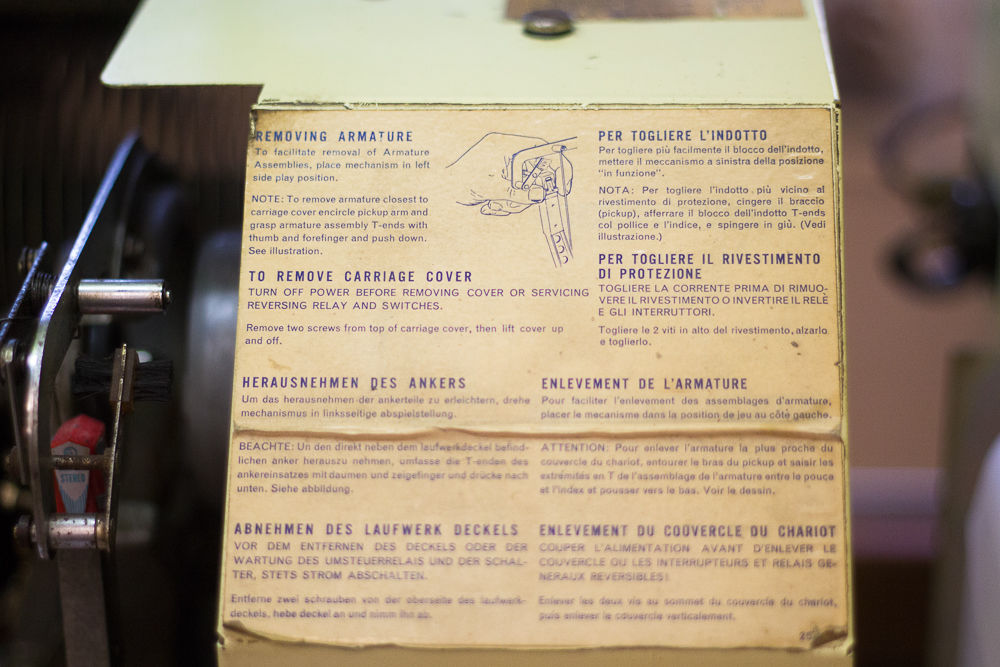 REMOVING ARMATURE
To facilitate removal of Armature
Assemblies, place mechanism in left
side play position.
NOTE: To remove armature closest to
carriage cover encircle pickup arm and
grasp armature assembly T-ends with
thumb and forefinger and push down.
See illustration.
TO REMOVE CARRIAGE COVER
TURN OFF POWER BEFORE REMOVING COVER OR SERVICING
REVERSING RELAY AND SWITCHES.
Remove two screws from top of carriage cover, then lift cover up
and off.
PER TOGLIERE L'INDOTTO
Per togliere più facilmente il blocco dell'indotto,
mettere il meccanismo a sinistra della posizione
"in funzione".
NOTA: Per togliere l'indotto più vicino al
rivestimento di protezione, cingere il braccio
(pickup), afferrare il blocco dell'indotto T-ends
col pollice e l'indice, e spingere in giù. (Vedi
illustrazione.)
PER TOGLIERE IL RIVESTIMENTO
DI PROTEZIONE
TOGLIERE LA CORRENTE PRIMA DI RIMUO-
VERE IL RIVESTIMENTO O INVERTIRE IL RELÈ
E GLI INTERRUTTORI.
Togliere le 2 viti in alto del rivestimento, alzarlo
e toglierlo.
HERAUSNEHMEN DES ANKERS
Um das herausnehmen der ankerteile zu erleichtern, drehe
mechanismus in linksseitige abspielstellung.
BEACHTE: Un den direkt neben dem laufwerkdeckel befind-
lichen anker herauszu nehmen, umfasse die T-enden des
ankereinsatzes mit daumen und zeigefinger and drücke nach
unten. Siehe abbildung.
ABNEHMEN DES LAUFWERK DECKELS
VOR DEM ENTFERNEN DES DECKELS ODER DER
WARTUNG DES UMSTEUERRELAIS UND DER SCHAL-
TER, STETS STROM ABSCHALTEN.
Entferne zwei schrauben von der oberseite des laufwerk-
deckels, hebe deckel an und nimm ihn ab.
ENLEVEMENT DE L'ARMATURE
Pour faciliter l'enlevement des assemblages d'armature,
placer le mecanisme dans la position de jeu au côté gauche.
ATTENTION: Pour enlever l'armature la plus proche du
couvercle du chariot, entourer le bras du pickup et saisir les
extrémités en T de l'assemblage de l'armature entre le pouce
et l'index et pousser vers le bas. Voir le dessin.
ENLEVEMENT DU COUVERCLE DU CHARIOT
COUPER L'ALIMENTATION AVANT D'ENLEVER LE
COUVERCLE OU LES INTERRUPTEURS ET RELAIS GE-
NERAUX REVERSIBLES!
Enlever les deux vis au sommet du couvercle du chariot,
puis enlever le couvercle verticalement.
STEREO